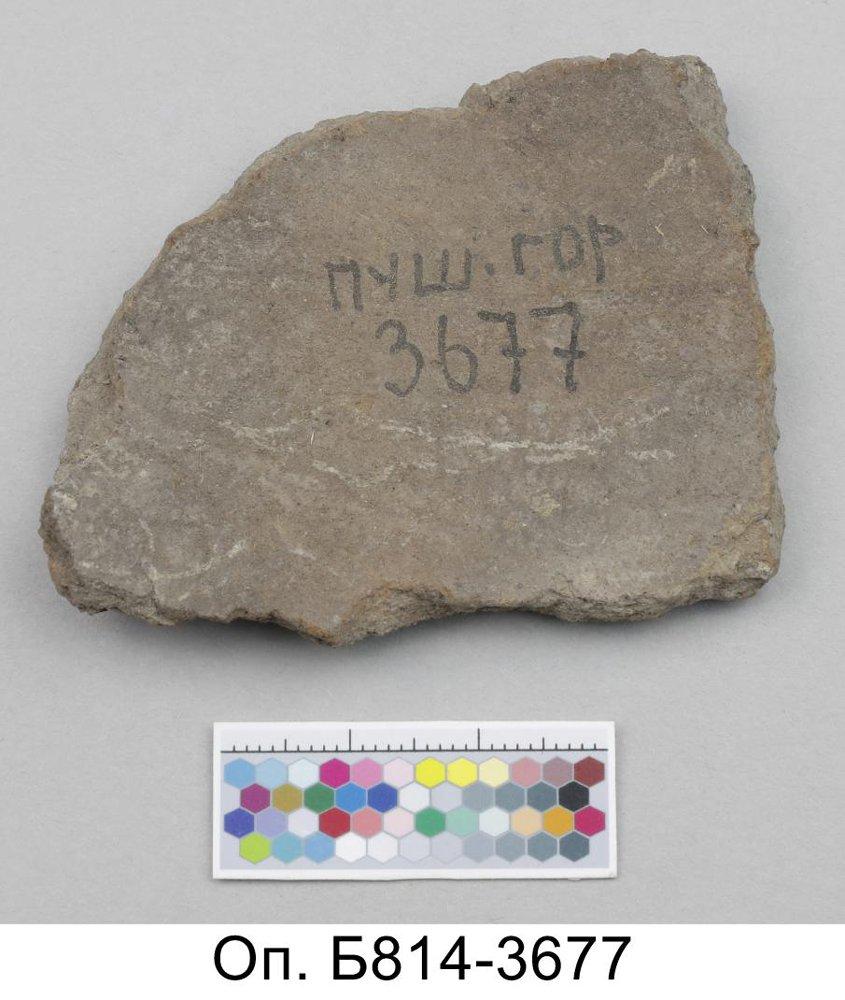 ПУШ.ГОР
3677
Оп. Б814-3677